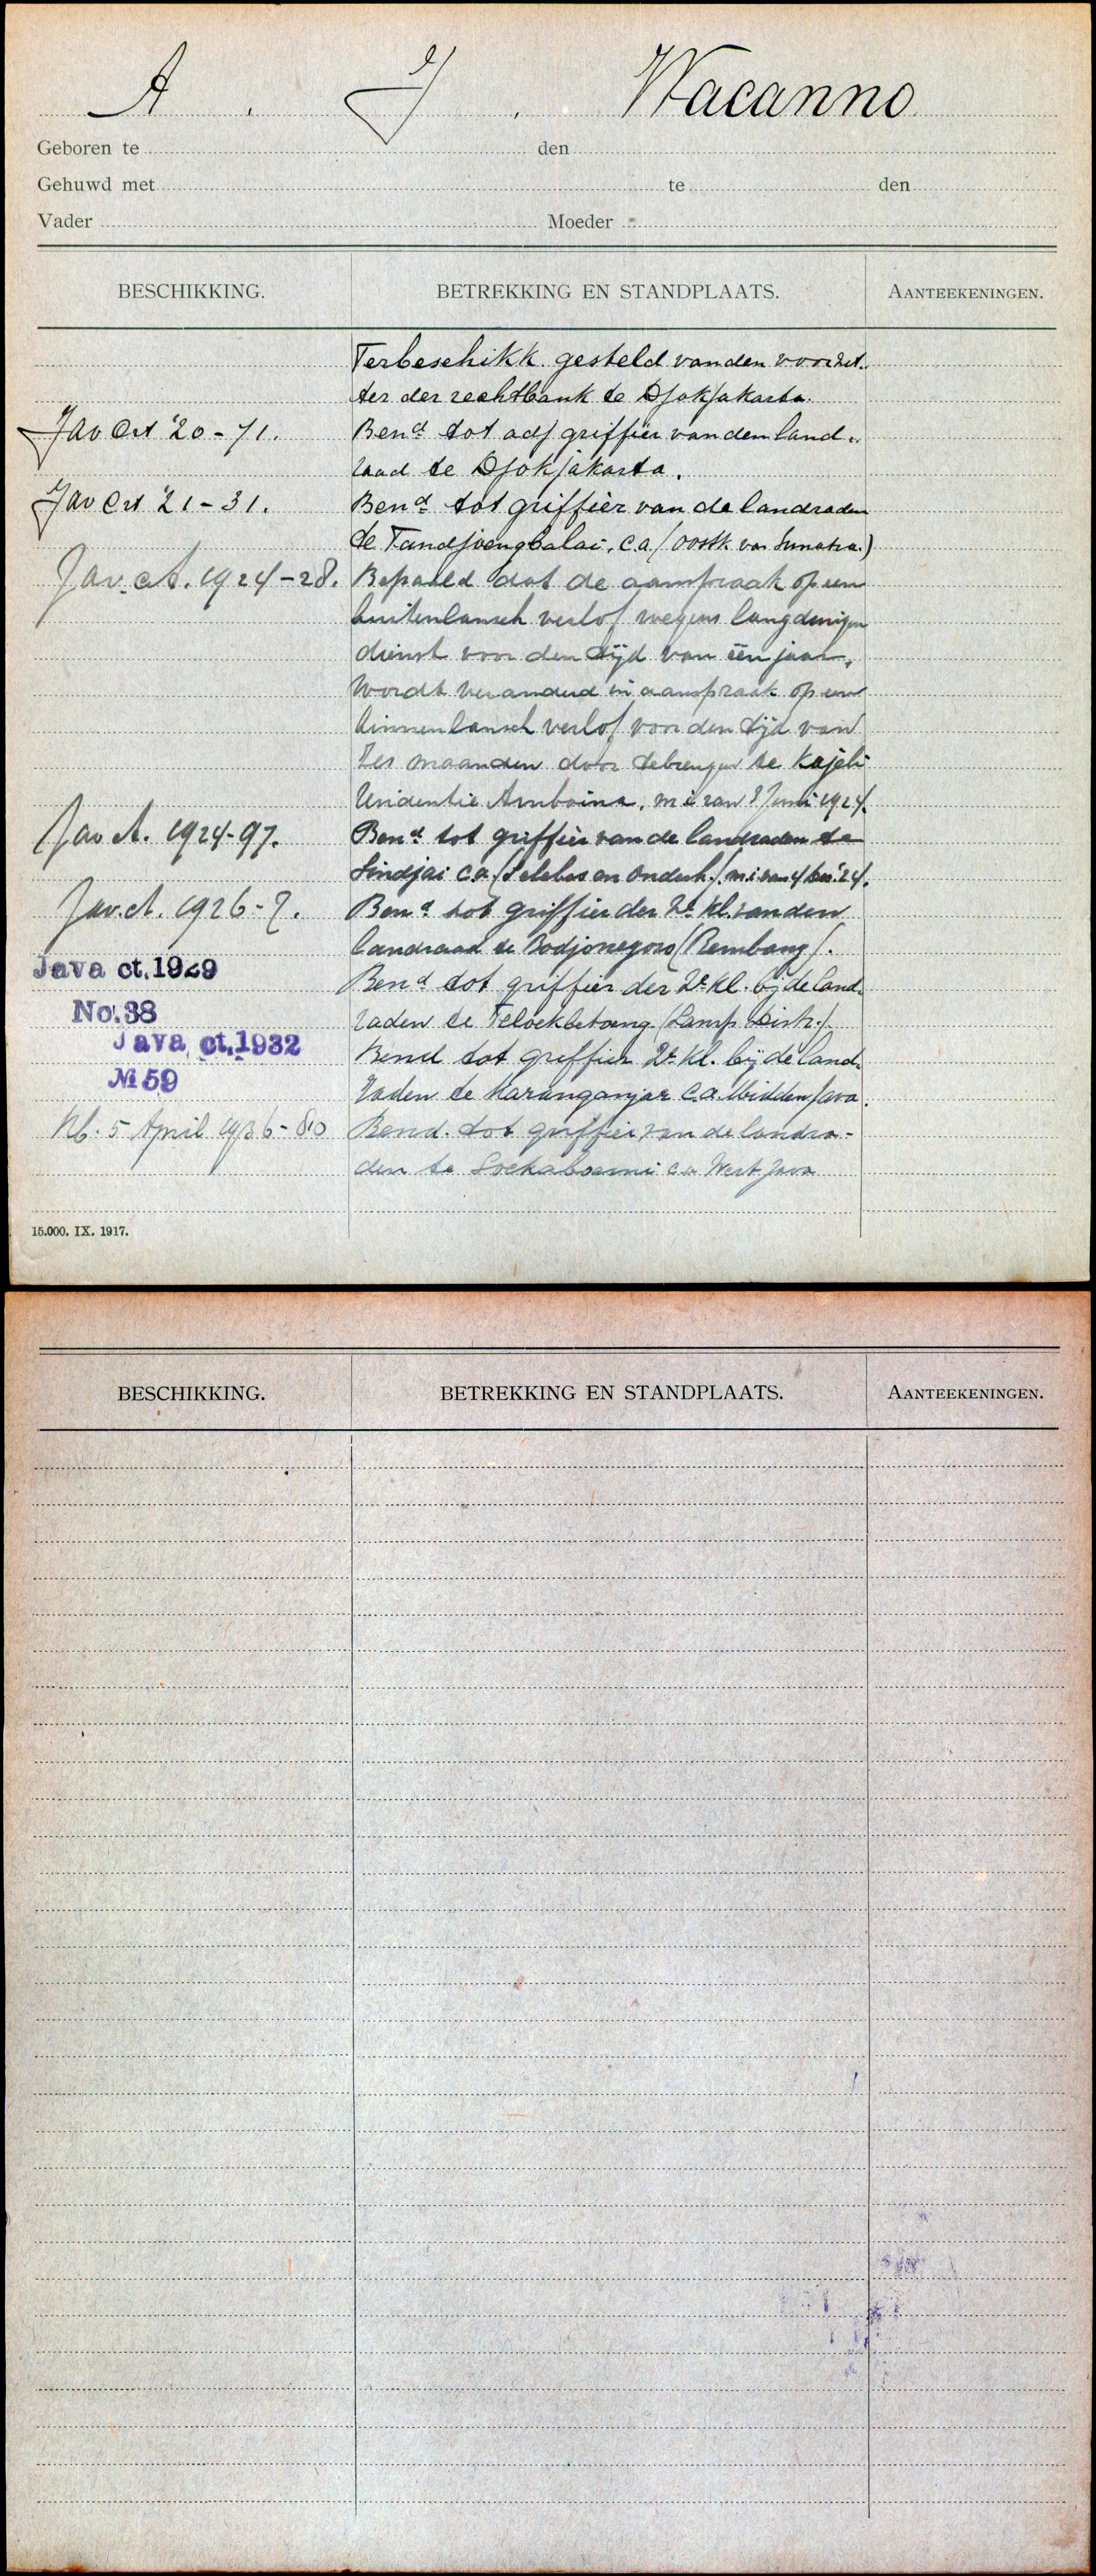 A. J. Wacanno
Geboren te den
Gehuwd met te den
Vader Moeder
BESCHIKKING. BETREKKING EN STANDPLAATS. AANTEEKENINGEN.
Terbeschikk. gesteld van den voorzit-
ter der rechtbank te Djokjakarta.
Jav Crt '20-71. Bend tot adj griffier van den land-
raad te Djokjakarta.
Jav Crt '21-31. Bend tot griffier van de landraden
te Tandjoengbalai, c.a. (oostk. van Sumatra.)
Jav. ct. 1924-28. Bepaald dat de aanspraak op een
buitenlansch verlof wegens langdurigen
dienst voor den tijd van één jaar,
wordt veranderd in aanspraak op een
binnenlansch verlof voor den tijd van
zes maanden door tebrengen te Kajeli
residentie Amboina, m i van 8 Juni 1924.
Jav ct. 1924-97. Bend tot griffier van de landraden te
Sindjai c.a. (Celebes en Onderh.) m.i. van 4 Dec. '24.
Jav. ct. 1926-7. Bend tot griffier der 2e kl. van den
landraad te Bodjonegoro (Rembang).
Java ct. 1929 Bend tot griffier der 2e kl. bij de land-
No. 38 raden te Telockbetoeng (Lamp. Distr.).
Java ct. 1932 Bend tot griffier 2e kl. bij de land-
№ 59 raden te Karanganjar c.a. Midden Java.
Nb. 5 April 1936-80 Bend. tot griffier van de landra-
den te Soekaboemi c.a West Java
15.000. IX. 1917.
BESCHIKKING. BETREKKING EN STANDPLAATS. AANTEEKENINGEN.